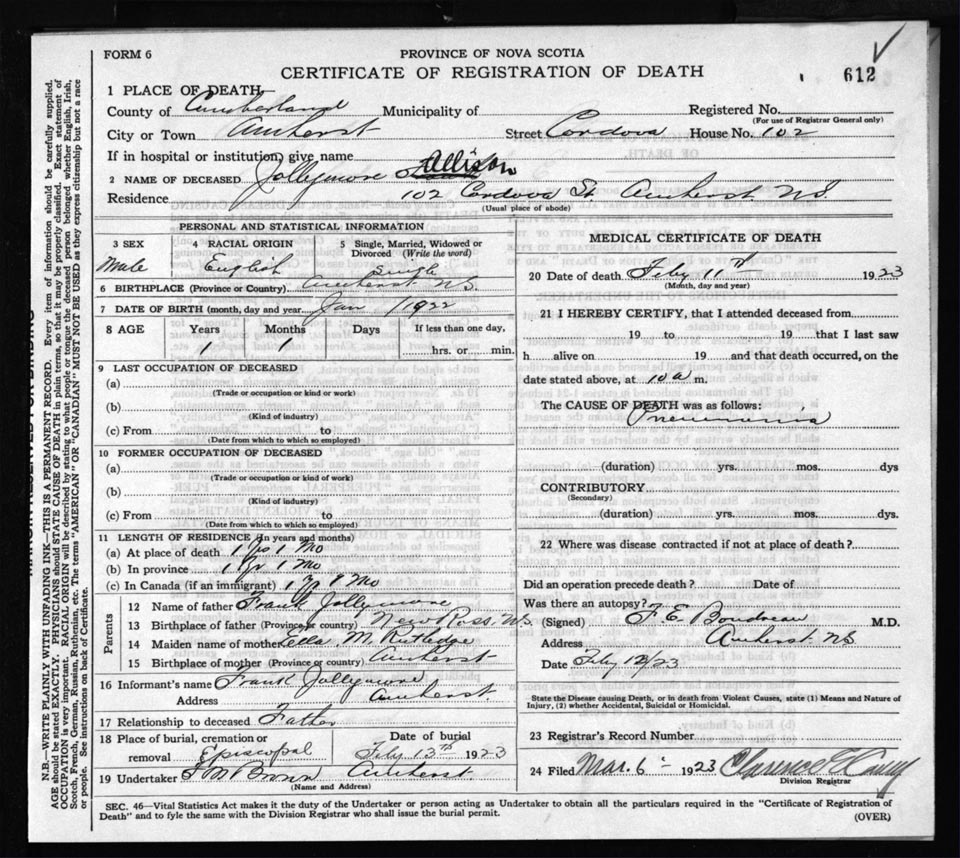 FORM 6
PROVINCE OF NOVA SCOTIA
CERTIFICATE OF REGISTRATION OF DEATH
612
1 PLACE OF DEATH
County of Cumberland Municipality of Registered No.
(For use of Registrar General only)
City or Town Amherst Street Cordova House No. 102
If in hospital or institution, give name
2 NAME OF DECEASED Jollymore Allison
Residence 102 Cordova St. Amherst N.S.
(Usual place of abode)
PERSONAL AND STATISTICAL INFORMATION
3 SEX 4 RACIAL ORIGIN 5 Single, Married, Widowed or Divorced (Write the word)
Male English Single
6 BIRTHPLACE (Province or Country) Amherst N.S.
7 DATE OF BIRTH (month, day and year) Jan 1922
8 AGE Years Months Days If less than one day,
1 1 hrs. or min.
9 LAST OCCUPATION OF DECEASED
(a)
(Trade or occupation or kind or work)
(b)
(Kind of industry)
(c) From to
(Date from which to which so employed)
10 FORMER OCCUPATION OF DECEASED
(a)
(Trade or occupation or kind of work)
(b)
(Kind of industry)
(c) From to
(Date from which to which so employed)
11 LENGTH OF RESIDENCE (In years and months)
(a) At place of death 1 Yr 1 Mo
(b) In province 1 Yr 1 Mo
(c) In Canada (if an immigrant) 1 Yr 1 Mo
Parents
12 Name of father Frank Jollymore
13 Birthplace of father (Province or country) New Ross N.S.
14 Maiden name of mother Ella M. Rutledge
15 Birthplace of mother (Province or country) Amherst
16 Informant's name Frank Jollymore
Address Amherst
17 Relationship to deceased Father
18 Place of burial, cremation or removal Episcopal Date of burial Feby 13th 1923
19 Undertaker Brown Amherst
(Name and Address)
MEDICAL CERTIFICATE OF DEATH
20 Date of death Feby 11th 1923
(Month, day and year)
21 I HEREBY CERTIFY, that I attended deceased from
19 to 19 that I last saw
h alive on 19 and that death occurred, on the
date stated above, at 10 a m.
The CAUSE OF DEATH was as follows:
Pneumonia
(duration) yrs. mos. dys
CONTRIBUTORY
(Secondary)
(duration) yrs. mos. dys
22 Where was disease contracted if not at place of death?
Did an operation precede death? Date of
Was there an autopsy?
(Signed) F. E. Boudreau M.D.
Address Amherst N.S
Date Feby 12/23
State the Disease causing Death, or in death from Violent Causes, state (1) Means and Nature of Injury, (2) whether Accidental, Suicidal or Homicidal.
23 Registrar's Record Number
24 Filed Mar. 6 1923 Clarence
Division Registrar
SEC. 46—Vital Statistics Act makes it the duty of the Undertaker or person acting as Undertaker to obtain all the particulars required in the "Certificate of Registration of
Death" and to fyle the same with the Division Registrar who shall issue the burial permit.
(OVER)
N.B.—WRITE PLAINLY WITH UNFADING INK—THIS IS A PERMANENT RECORD. Every item of information should be carefully supplied.
AGE should be stated EXACTLY. PHYSICIANS should STATE CAUSE OF DEATH in plain terms, so that it may be properly classified. Exact statement of
OCCUPATION is very important. RACIAL ORIGIN will be described by stating to what people or tongue the deceased person belonged whether English, Irish,
Scotch, French, German, Russian, Ruthenian, etc. The terms "AMERICAN" OR "CANADIAN" MUST NOT BE USED as they express citizenship but not a race
or people. See instructions on back of Certificate.